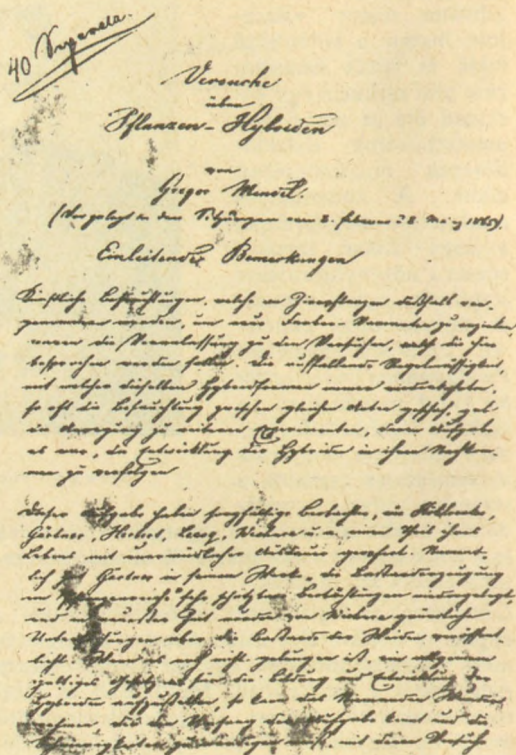 40 Separata.
Versuche
über
Pflanzen-Hybriden
von
Gregor Mendel.
(Vorgelegt in den Sitzungen vom 8. Februar 8. März 1865)
Einleitende Bemerkungen
Künstliche Befruchtungen, welche an Zierpflanzen deßhalb vor-
genommen wurden, um neue Farben-Varianten zu erzielen,
waren die Veranlassung zu den Versuchen, welche hier
besprochen werden sollen. Die auffallende Regelmässigkeit,
mit welcher dieselben Hybridformen immer wiederkehrten,
so oft die Befruchtung zwischen gleichen Arten geschah, gab
die Anregung zu weiteren Experimenten, deren Aufgabe
es war, die Entwicklung der Hybriden in ihren Nachkom-
men zu verfolgen
Dieser Aufgabe haben sorgfältige Beobachter, wie Kölreuter,
Gärtner, Herbert, Lecoq, Wichura u. a. einen Theil ihres
Lebens mit unermüdlicher Ausdauer geopfert. Nament-
lich hat Gärtner in seinem Werke „die Bastarderzeugung
im Pflanzenreiche" sehr schätzbare Beobachtungen niedergelegt,
und in neuester Zeit wurden von Wichura gründliche
Untersuchungen über die Bastarde der Weiden veröffent-
licht. Wenn es noch nicht gelungen ist, ein allgemein
giltiges Gesetz für die Bildung und Entwicklung der
Hybriden aufzustellen, so kann das Niemanden Wunder
nehmen, der den Umfang der Aufgabe kennt und die
Schwierigkeiten zu würdigen weiß, mit denen Versuche